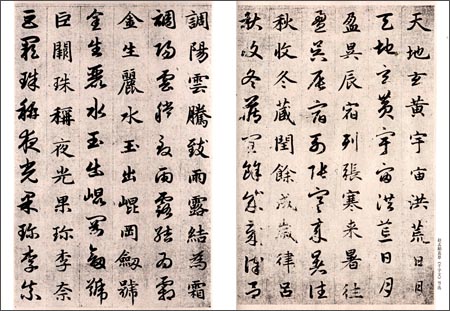 天地玄黄宇宙洪荒日月
天地玄黄宇宙洪荒日月
盈昃辰宿列張寒来暑往
盈昃辰宿列張寒来暑往
秋收冬藏閏餘成歲律吕
秋收冬藏閏餘成歲律吕
調陽雲騰致雨露結為霜
調陽雲騰致雨露結為霜
金生麗水玉出崐岡劔號
金生麗水玉出崐岡劔號
巨闕珠稱夜光果珍李柰
巨闕珠稱夜光果珍李柰